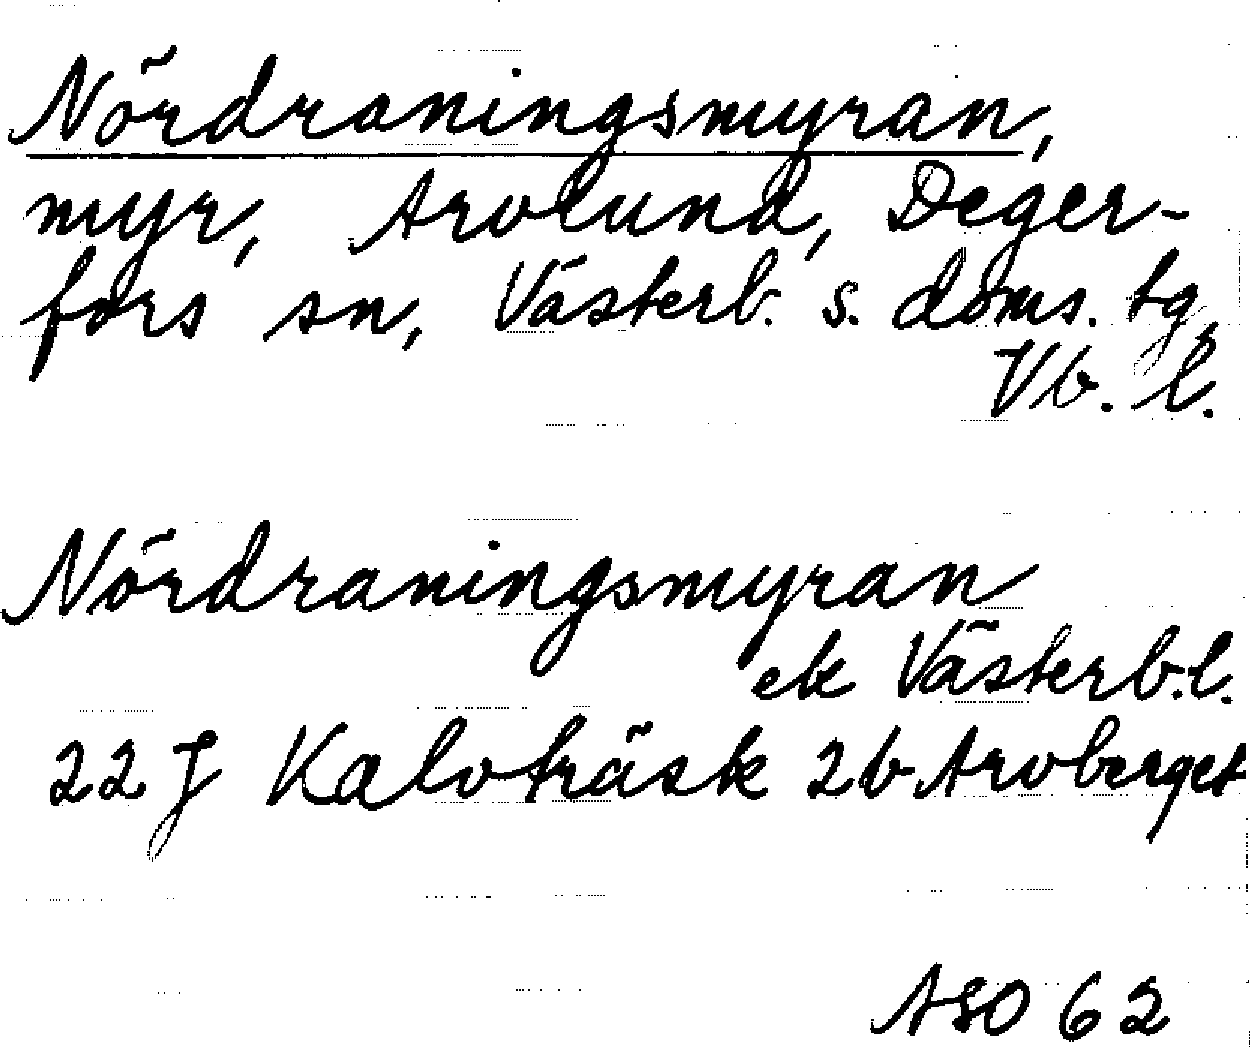 Nördraningsmyran,
myr, Arvlund, Deger-
fors sn, Västerb. s. doms. tg,
Vb. l.
Nördraningsmyran
ek Västerb.l.
22 J Kalvträsk 2b Arvberget
ASO 62